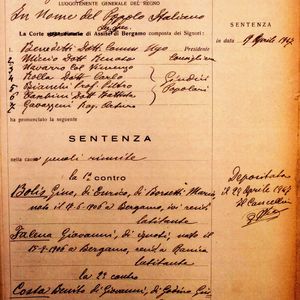 LUOGOTENENTE GENERALE DEL REGNO
In Nome del Popolo Italiano
La Corte di Assise di Bergamo composta dei Signori:
SENTENZA
in data 9 Aprile 1947
1 Benedetti Dott. Comm. Ugo Presidente
2 Miccio Dott. Renato Consigliere
3 Navarro Vincenzo
4 Rolla Dott. Carlo Giudici
5 Bianchi Prof. Pietro Popolari
6 Tambini Dott. Battista
7 Gavazzeni Rag. Arturo
ha pronunciato la seguente
SENTENZA
nella causa penali riunite
la 1ª contro
Bolis Gino, di Enrico, di Borsetti Maria
nato il 1906 a Bergamo, ivi resid.
latitante
Falena Giovanni, di ignoti, nato il
1906 a Bergamo, resid. a Ranica
latitante
la 2ª contro
Costa Benito di Giovanni, di
Depositata
il 28 Aprile 1947
Il Cancelliere